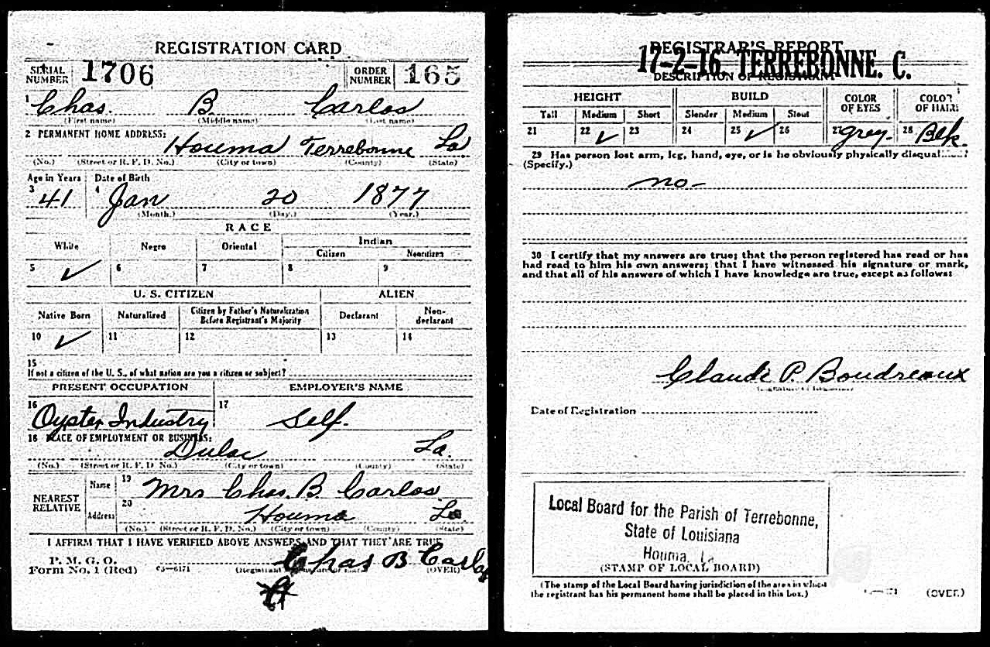 REGISTRATION CARD
SERIAL NUMBER 1706 ORDER NUMBER 165
1 Chas. B Carlos
(First name) (Middle name) (Last name)
2 PERMANENT HOME ADDRESS:
Houma Terrebonne La
(No.) (Street or R. F. D. No.) (City or town) (County) (State)
Age in Years Date of Birth
3 41 4 Jan 20 1877
(Month.) (Day.) (Year.)
RACE
White Negro Oriental Indian
Citizen Noncitizen
5 ✓ 6 7 8 9
U. S. CITIZEN ALIEN
Native Born Naturalized Citizen by Father's Naturalization Before Registrant's Majority Declarant Non-declarant
10 ✓ 11 12 13 14
15
If not a citizen of the U. S., of what nation are you a citizen or subject?
PRESENT OCCUPATION EMPLOYER'S NAME
16 Oyster Industry 17 Self.
18 PLACE OF EMPLOYMENT OR BUSINESS:
Dulac La.
(No.) (Street or R. F. D. No.) (City or town) (County) (State)
NEAREST RELATIVE Name 19 Mrs Chas. B. Carlos
Address 20 Houma La
(No.) (Street or R. F. D. No.) (City or town) (County) (State)
I AFFIRM THAT I HAVE VERIFIED ABOVE ANSWERS AND THAT THEY ARE TRUE
P. M. G. O.
Form No. 1 (Red) 03—6171 Chas B Carlos (OVER)
REGISTRAR'S REPORT
17-2-16 TERREBONNE. C.
DESCRIPTION OF REGISTRANT
HEIGHT BUILD COLOR OF EYES COLOR OF HAIR
Tall Medium Short Slender Medium Stout
21 22 ✓ 23 24 25 ✓ 26 27 grey. 28 Blk.
29 Has person lost arm, leg, hand, eye, or is he obviously physically disqual
(Specify.)
no-
30 I certify that my answers are true; that the person registered has read or has
had read to him his own answers; that I have witnessed his signature or mark,
and that all of his answers of which I have knowledge are true, except as follows:
Claude P. Boudreaux
Date of Registration
Local Board for the Parish of Terrebonne,
State of Louisiana
Houma, La.
(STAMP OF LOCAL BOARD)
(The stamp of the Local Board having jurisdiction of the area in which
the registrant has his permanent home shall be placed in this box.) (OVER)